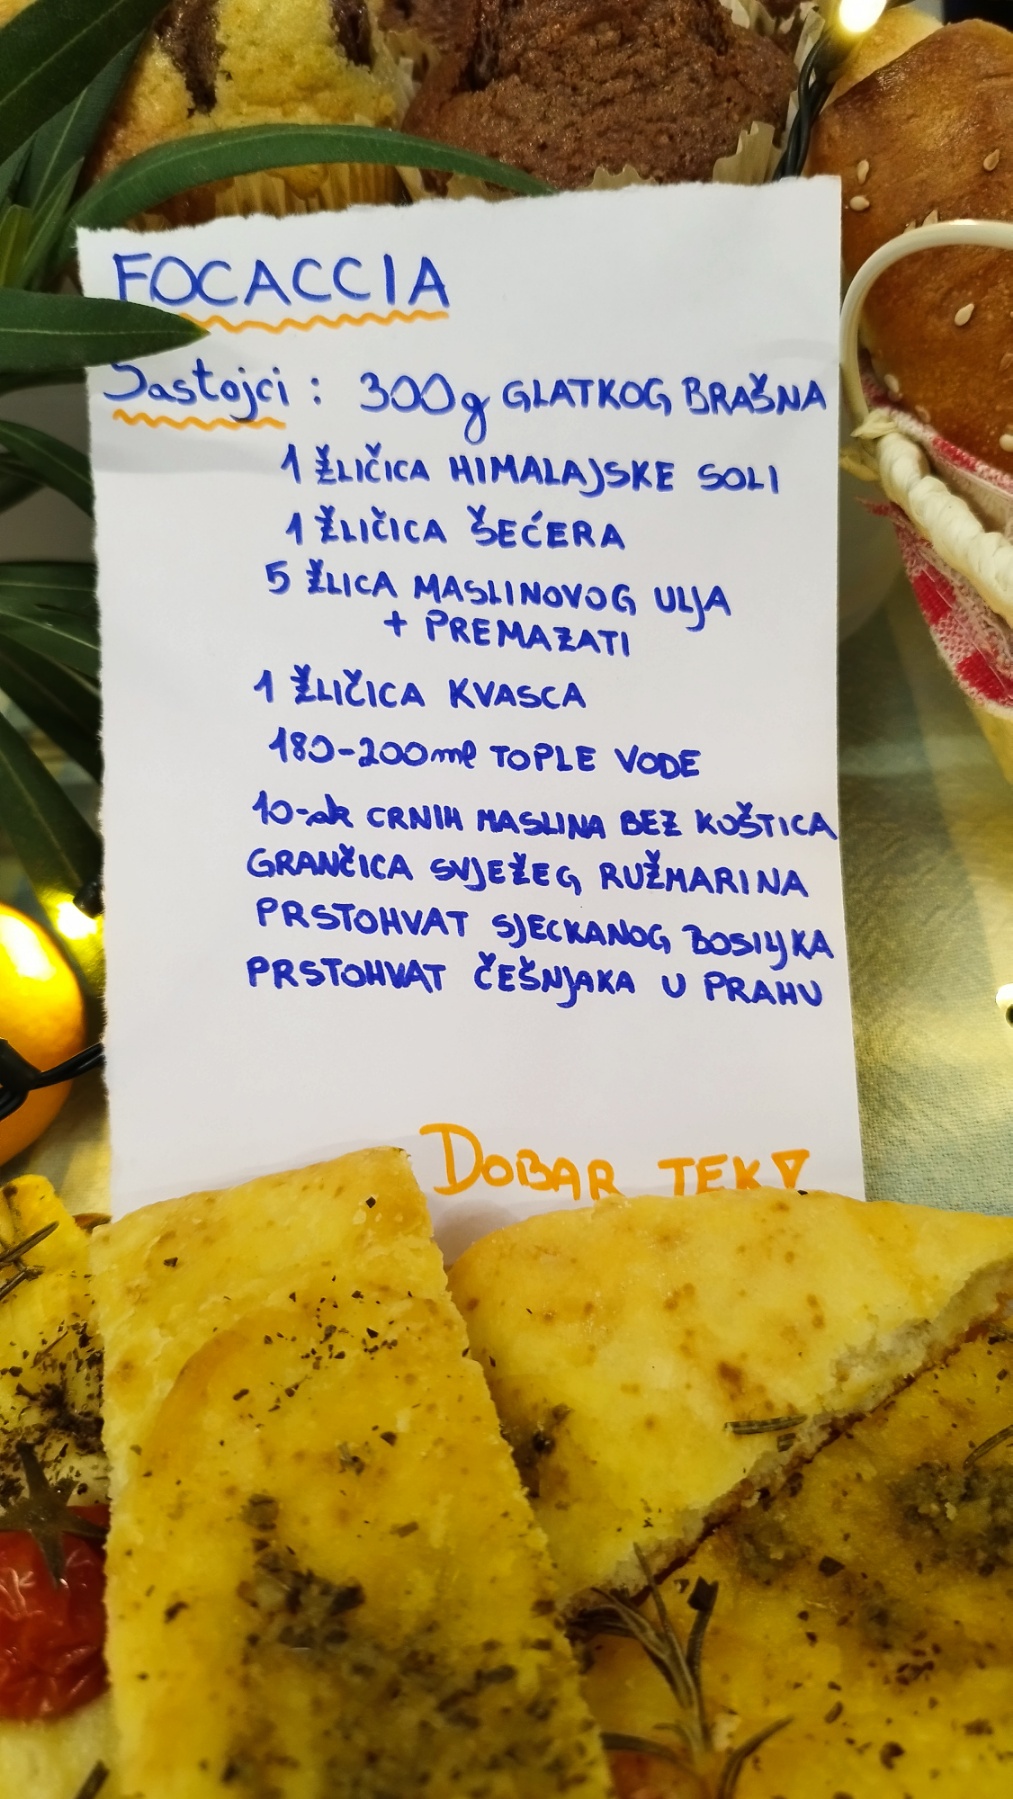 FOCACCIA
Sastojci : 300g GLATKOG BRAŠNA
1 ŽLIČICA HIMALAJSKE SOLI
1 ŽLIČICA ŠEĆERA
5 ŽLICA MASLINOVOG ULJA
+ PREMAZATI
1 ŽLIČICA KVASCA
180-200ml TOPLE VODE
10-ak CRNIH MASLINA BEZ KOŠTICA
GRANČICA SVJEŽEG RUŽMARINA
PRSTOHVAT SJECKANOG BOSILJKA
PRSTOHVAT ČEŠNJAKA U PRAHU
DOBAR TEK!